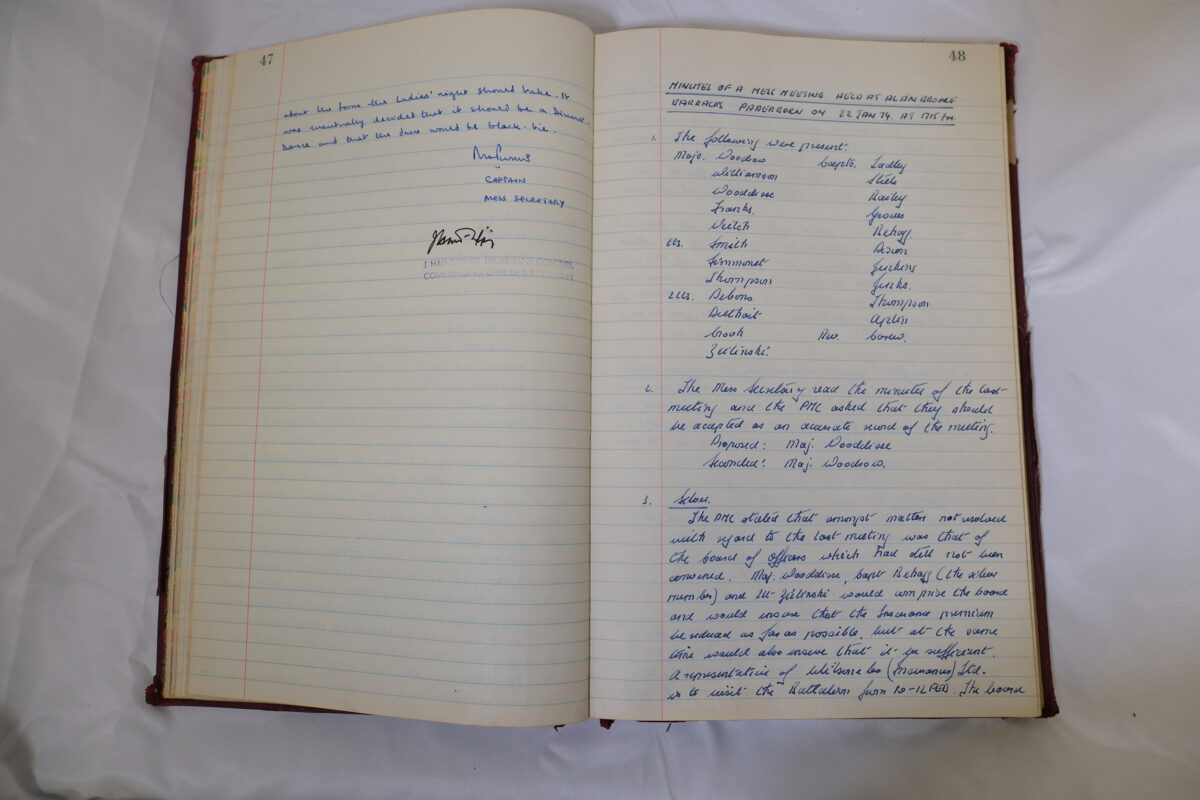 47
about the form the Ladies' night should take. It
was eventually decided that it should be a Dinner-
Dance and that the dress would be black-tie.
CAPTAIN
MESS SECRETARY
COMMANDING OFFICER,
48
MINUTES OF A MESS MEETING HELD AT ALANBROOKE
BARRACKS PADERBORN ON 22 JAN 74. AT 1715 hrs.
1. The following were present.
Majs. Woodrow Capts. Tadley
Williamson Steele
Wooddisse Bailey
Franks. Groves
Veitch Behagg.
Lts. Smith Dixon
Simmonet Jenkins
Thompson Jenks.
2Lts. Thompson
Aplin
Crook Rev. Carew.
Zielinski.
2. The Mess Secretary read the minutes of the last
meeting and the PMC asked that they should
be accepted as an accurate record of the meeting.
Proposed: Maj. Wooddisse
Seconded: Maj. Woodrow.
3. Silver.
The PMC stated that amongst matters not resolved
with regard to the last meeting was that of
the board of officers which had still not been
convened. Maj. Wooddisse, Capt Behagg (the silver
member) and 2Lt Zielinski would comprise the board
and would ensure that the Insurance premium
be reduced as far as possible, but at the same
time would also ensure that it be sufficient.
A representative of (Insurances) Ltd.
is to visit the Battalion from 10-12 FEB. The board